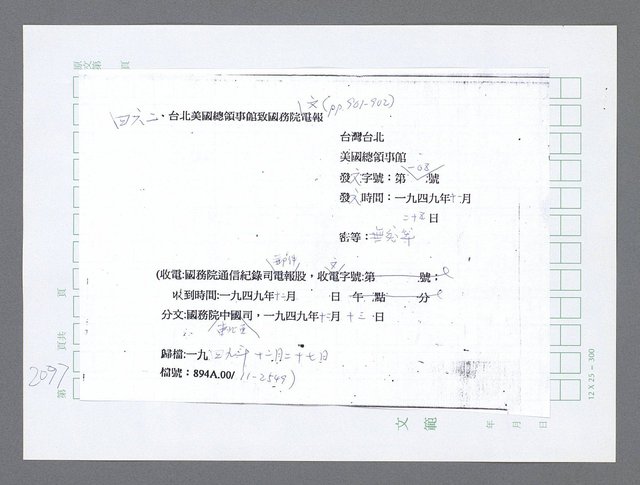 四六二、台北美國總領事館致國務院電報
文(pp.901-902)
台灣台北
美國總領事館
發文字號：第一○三號
發文時間：一九四九年十一月
二十五日
密等：無密等
(收電:國務院通信紀錄司電報股，收電字號:第 號：
郵件
文
收到時間:一九四九年十二月 日 午 點 分
分文:國務院中國司，一九四九年十二月十三日
東北亞
歸檔:一九五九年十二月二十七日
檔號：894A.00/11-2549)
2097
第 頁共 頁
文範
年 月 日
12 X 25 = 300